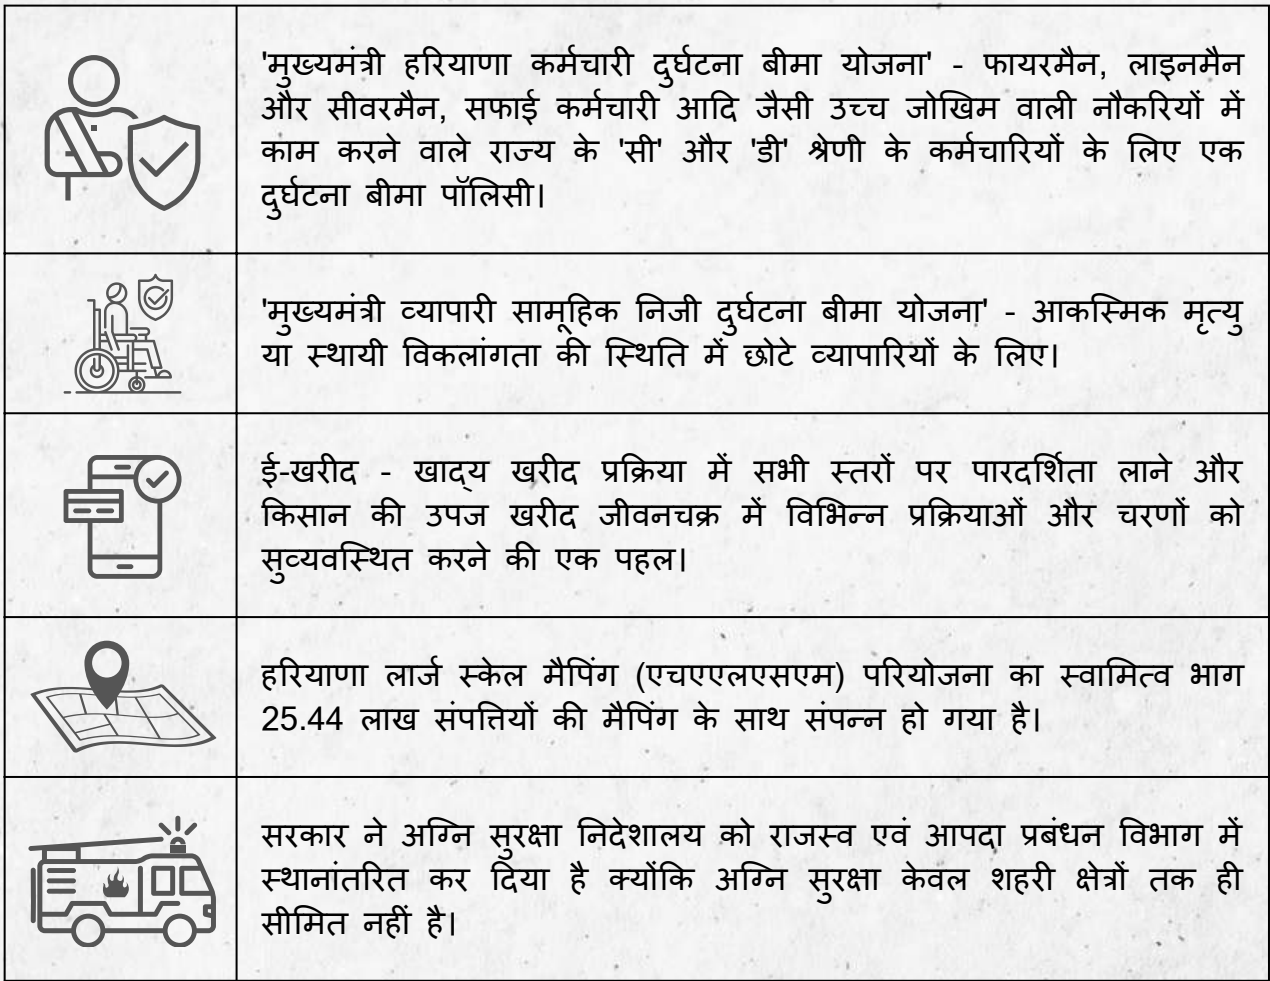 'मुख्यमंत्री हरियाणा कर्मचारी दुर्घटना बीमा योजना' - फायरमैन, लाइनमैन
और सीवरमैन, सफाई कर्मचारी आदि जैसी उच्च जोखिम वाली नौकरियों में
काम करने वाले राज्य के 'सी' और 'डी' श्रेणी के कर्मचारियों के लिए एक
दुर्घटना बीमा पॉलिसी।
'मुख्यमंत्री व्यापारी सामूहिक निजी दुर्घटना बीमा योजना' - आकस्मिक मृत्यु
या स्थायी विकलांगता की स्थिति में छोटे व्यापारियों के लिए।
ई-खरीद - खाद्य खरीद प्रक्रिया में सभी स्तरों पर पारदर्शिता लाने और
किसान की उपज खरीद जीवनचक्र में विभिन्न प्रक्रियाओं और चरणों को
सुव्यवस्थित करने की एक पहल।
हरियाणा लार्ज स्केल मैपिंग (एचएएलएसएम) परियोजना का स्वामित्व भाग
25.44 लाख संपत्तियों की मैपिंग के साथ संपन्न हो गया है।
सरकार ने अग्नि सुरक्षा निदेशालय को राजस्व एवं आपदा प्रबंधन विभाग में
स्थानांतरित कर दिया है क्योंकि अग्नि सुरक्षा केवल शहरी क्षेत्रों तक ही
सीमित नहीं है।